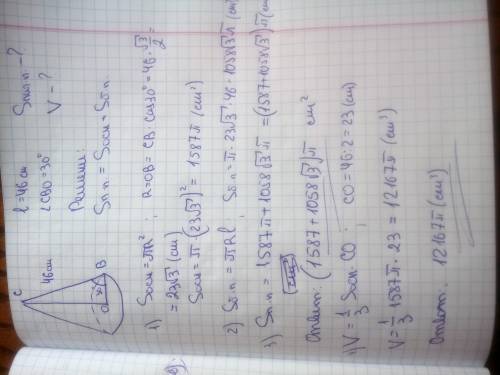 C
46см
30°
O
B
l = 46 см
∠CBO = 30°
Sпол.п - ?
V - ?
Решение:
Sп.п = Sосн + Sб.п
1) Sосн = πR² ; R = OB = CB · cos30° = 46 · √3/2 =
= 23√3 (cm)
Sосн = π · (23√3)² = 1587π (cm²)
2) Sб.п = πRl ; Sб.п = π · 23√3 · 46 = 1058√3 π (cm²)
3) Sп.п = 1587π + 1058√3 π = (1587 + 1058√3) π (cm²)
Ответ: (1587 + 1058√3) π cm²
4) V = 1/3 Sосн · CO ; CO = 46 : 2 = 23 (cm)
V = 1/3 · 1587π · 23 = 12167π (cm³)
Ответ: 12167π (cm³)